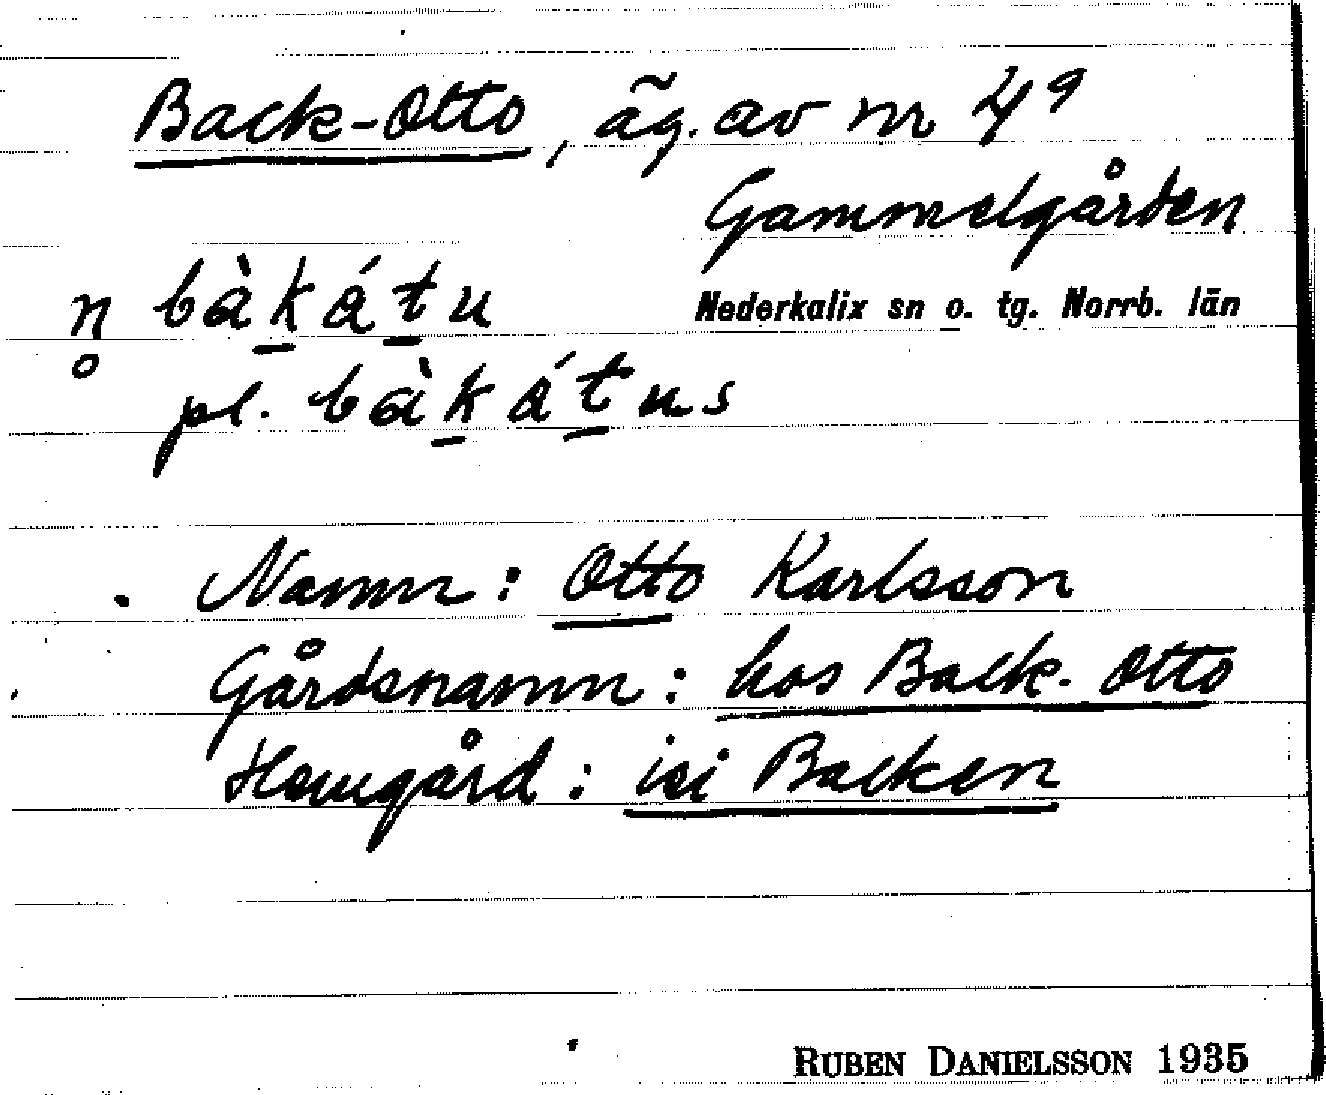 Back-Otto, äg. av nr 4⁹
Gammelgården
n bàkátu
Nederkalix sn o. tg. Norrb. län
o pl. bàkátus
Namn: Otto Karlsson
Gårdsnamn: hos Back-Otto
Hemgård: isi Backen
RUBEN DANIELSSON 1935